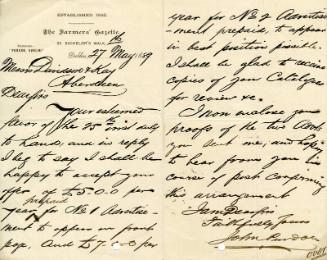 ESTABLISHED 1842.
The Farmers' Gazette,
23, BACHELOR'S WALK,
Dublin, 27th May 1889
Messrs Davidson & Kay
Aberdeen
Dear Sirs
Your esteemed
favor of the 25th inst duly
to hand, and in reply
I beg to say I shall be
happy to accept your
offer of £5.0.0 per
year prepaid for No 1 Advertise-
ment to appear on front
page. And £7.0.0 per
year for No 2 Advertise-
ment prepaid, to appear
in best position possible.
I shall be glad to receive
copies of your Catalogue
for review &c.
I now enclose you
proofs of the two Advts
you sent me, and hoping
to hear from you in
course of post confirming
this arrangement
I am Dear Sirs
Faithfully Yours
John Purdon